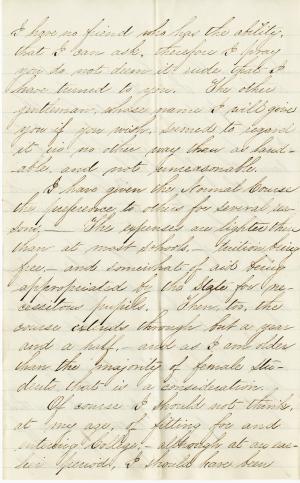 I have no friend who has the ability,
that I can ask, therefore I pray
you do not deem it rude that I
have turned to you. The other
gentleman, whose name I will give
you if you wish, seemed to regard
it in no other way than as laud-
able, and not unreasonable.
I have given the Normal Course
the preference to others for several rea-
sons, – The expenses are lighter there
than at most schools, – tuition being
free, – and somewhat of aid being
appropriated by the State for ne-
cessitous pupils. Then, too, the
course extends through but a year
and a half, and as I am older
than the majority of female stu-
dents, that is a consideration.
Of course I should not think,
at my age, of fitting for and
entering College, – although at an ear-
lier period, I should have been